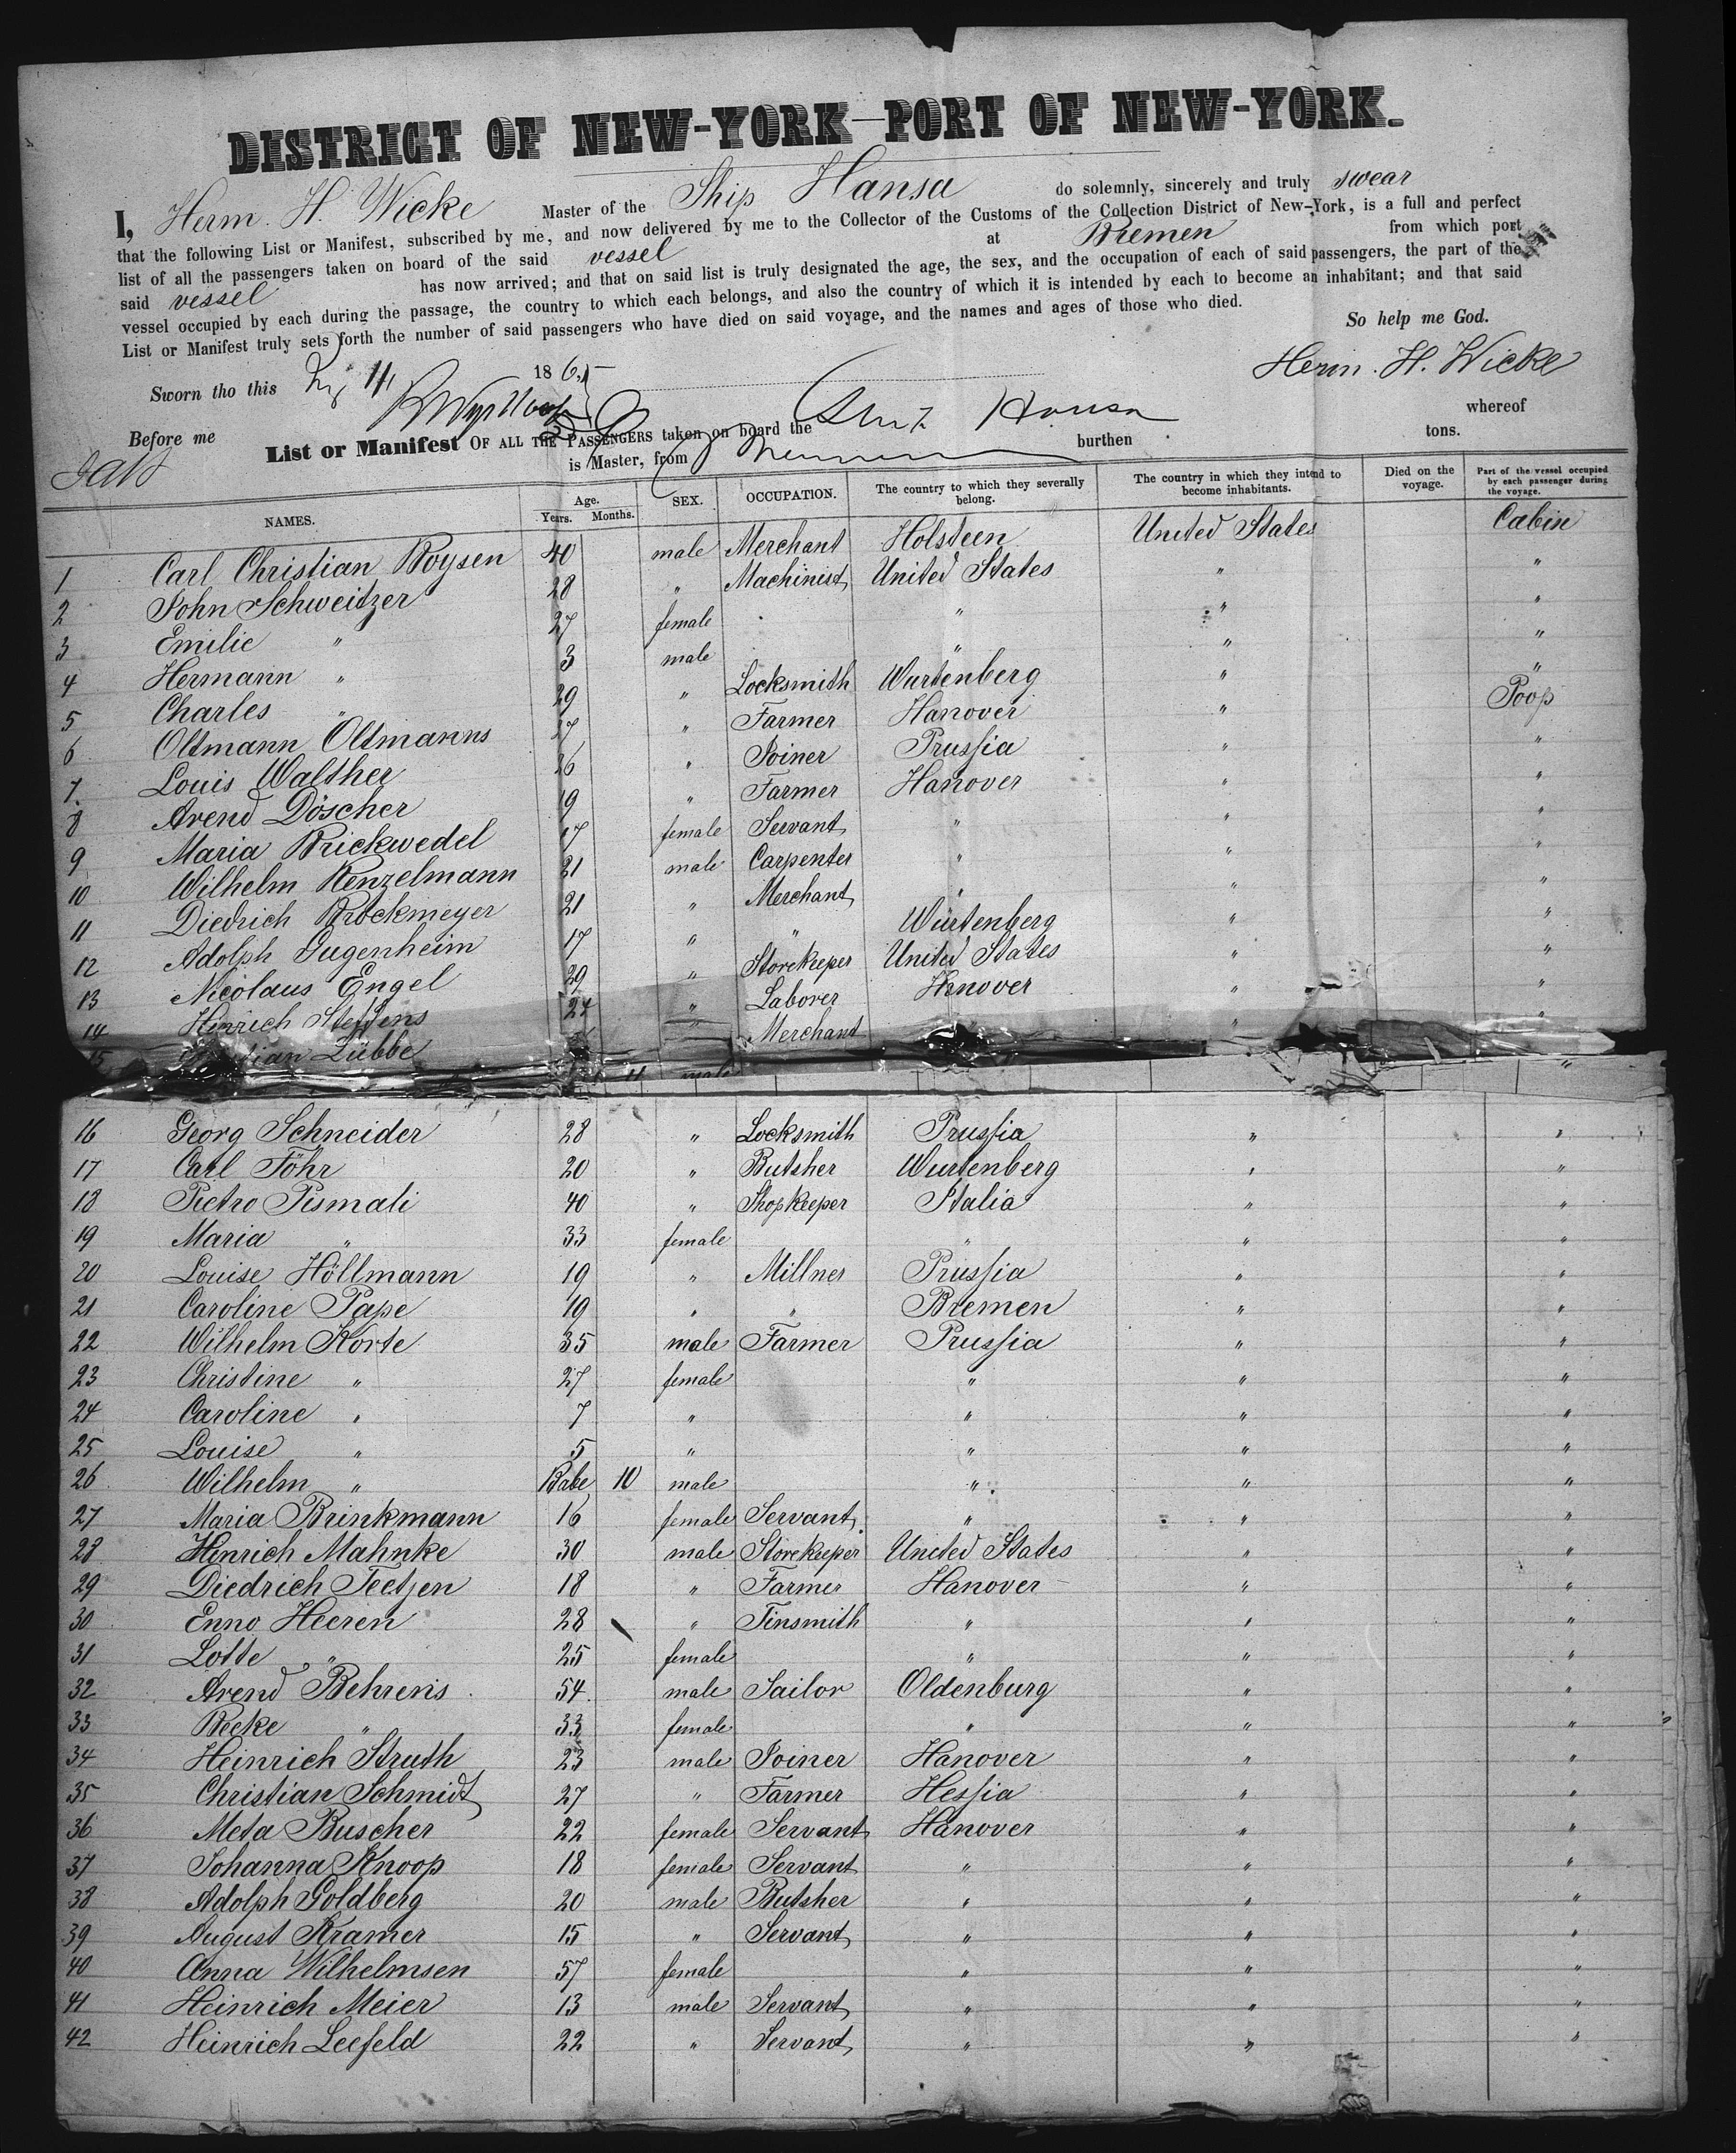 DISTRICT OF NEW-YORK—PORT OF NEW-YORK.
I, Herm. H. Wicke Master of the Ship Hansa do solemnly, sincerely and truly swear
that the following List or Manifest, subscribed by me, and now delivered by me to the Collector of the Customs of the Collection District of New-York, is a full and perfect
list of all the passengers taken on board of the said vessel at Bremen from which port
said vessel has now arrived; and that on said list is truly designated the age, the sex, and the occupation of each of said passengers, the part of the
vessel occupied by each during the passage, the country to which each belongs, and also the country of which it is intended by each to become an inhabitant; and that said
List or Manifest truly sets forth the number of said passengers who have died on said voyage, and the names and ages of those who died.
So help me God.
Sworn tho this 4 1865 Herm. H. Wicke
Before me
List or Manifest OF ALL THE PASSENGERS taken on board the Hansa whereof
is Master, from burthen tons.
NAMES. Age. Years. Months. SEX. OCCUPATION. The country to which they severally belong. The country in which they intend to become inhabitants. Died on the voyage. Part of the vessel occupied by each passenger during the voyage.
1 Carl Christian Boysen 40 male Merchant Holsteen United States Cabin
2 John Schweitzer 28 " Machinist United States " "
3 Emilie " 27 female " " "
4 Hermann " 3 male " " "
5 Charles " 29 " Locksmith Wurtenberg " "
6 Oltmann Oltmanns 27 " Farmer Hanover " Poop
7. Louis Walther 26 " Joiner Prussia " "
8 Arend Döscher 19 " Farmer Hanover " "
9 Maria Brickwedel 17 female Servant " " "
10 Wilhelm Renzelmann 21 male Carpenter " " "
11 Diedrich Brockmeyer 21 " Merchant " " "
12 Adolph Gugenheim 17 " " Wurtenberg " "
13 Nicolaus Engel 29 " Storekeeper United States " "
14 Hinrich Steffens 24 " Laborer Hanover " "
15 Lübbe " Merchant " "
16 Georg Schneider 28 " Locksmith Prussia " "
17 Carl Föhr 20 " Butsher Wurtenberg " "
18 Pietro Pismali 40 " Shopkeeper Italia " "
19 Maria " 33 female " " "
20 Louise Höllmann 19 " Millner Prussia " "
21 Caroline Pape 19 " " Bremen " "
22 Wilhelm Korte 35 male Farmer Prussia " "
23 Christine " 27 female " " "
24 Caroline " 7 " " " "
25 Louise " 5 " " " "
26 Wilhelm " Babe 10 male " " "
27 Maria Brinkmann 16 female Servant " " "
28 Hinrich Mahnke 30 male Storekeeper United States " "
29 Diedrich Teetjen 18 " Farmer Hanover " "
30 Enno Heeren 28 " Tinsmith " " "
31 Lotte " 25 female " " "
32 Arend Behrens 54 male Sailor Oldenburg " "
33 Becke " 33 female " " "
34 Heinrich Struth 23 male Joiner Hanover " "
35 Christian Schmidt 27 " Farmer Hessia " "
36 Meta Buscher 22 female Servant Hanover " "
37 Johanna Knoop 18 female Servant " " "
38 Adolph Goldberg 20 male Butsher " " "
39 August Kramer 15 " Servant " " "
40 Anna Wilhelmsen 57 female " " "
41 Heinrich Meier 13 male Servant " " "
42 Heinrich Leefeld 22 " Servant " " "